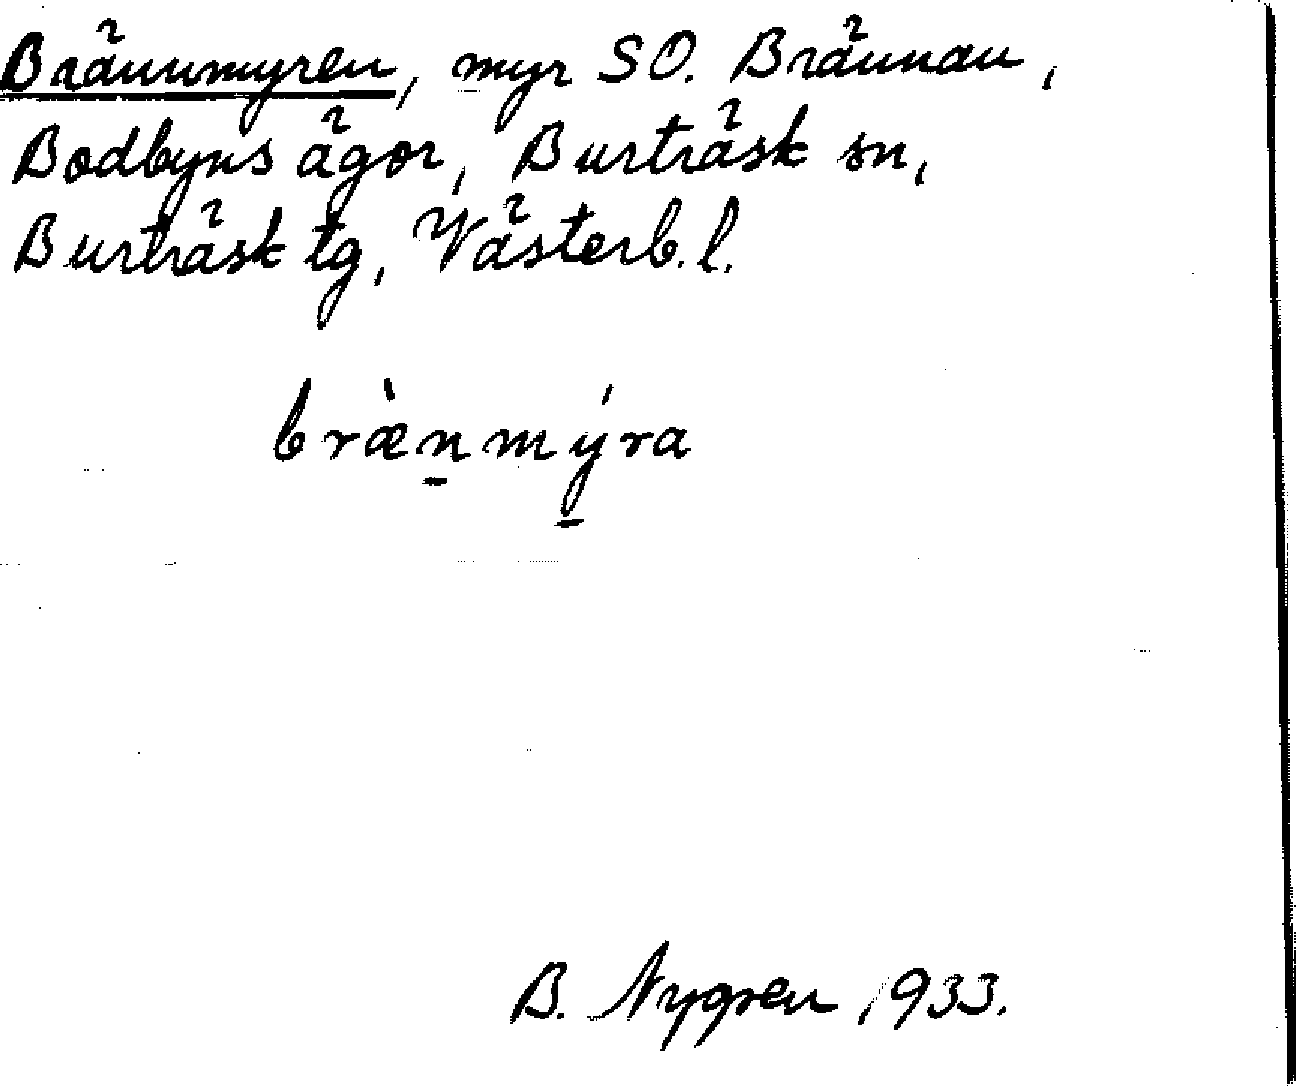 Brännmyren, myr SO. Brännan,
Bodbyns ägor, Burträsk sn,
Burträsk tg, Västerb. l.
bræ̀n̠mý̠ra
B. Nygren 1933.